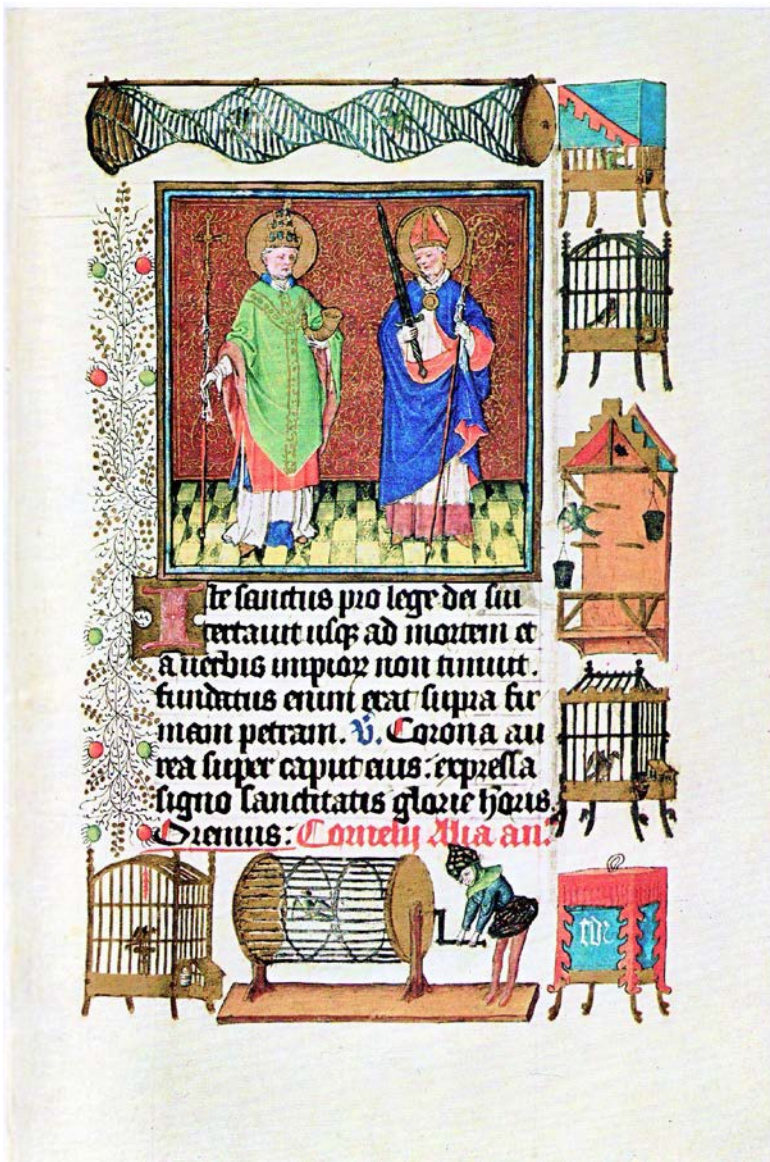 Iste sanctus pro lege dei sui
certauit usqꝫ ad mortem et
a uerbis impioꝝ non timuit.
fundatus enim erat supra fir
mam petram. V̷. Corona au
rea super caput eius: expressa
signo sanctitatis glorie honis.
Oremus: Cornelij Alia an.